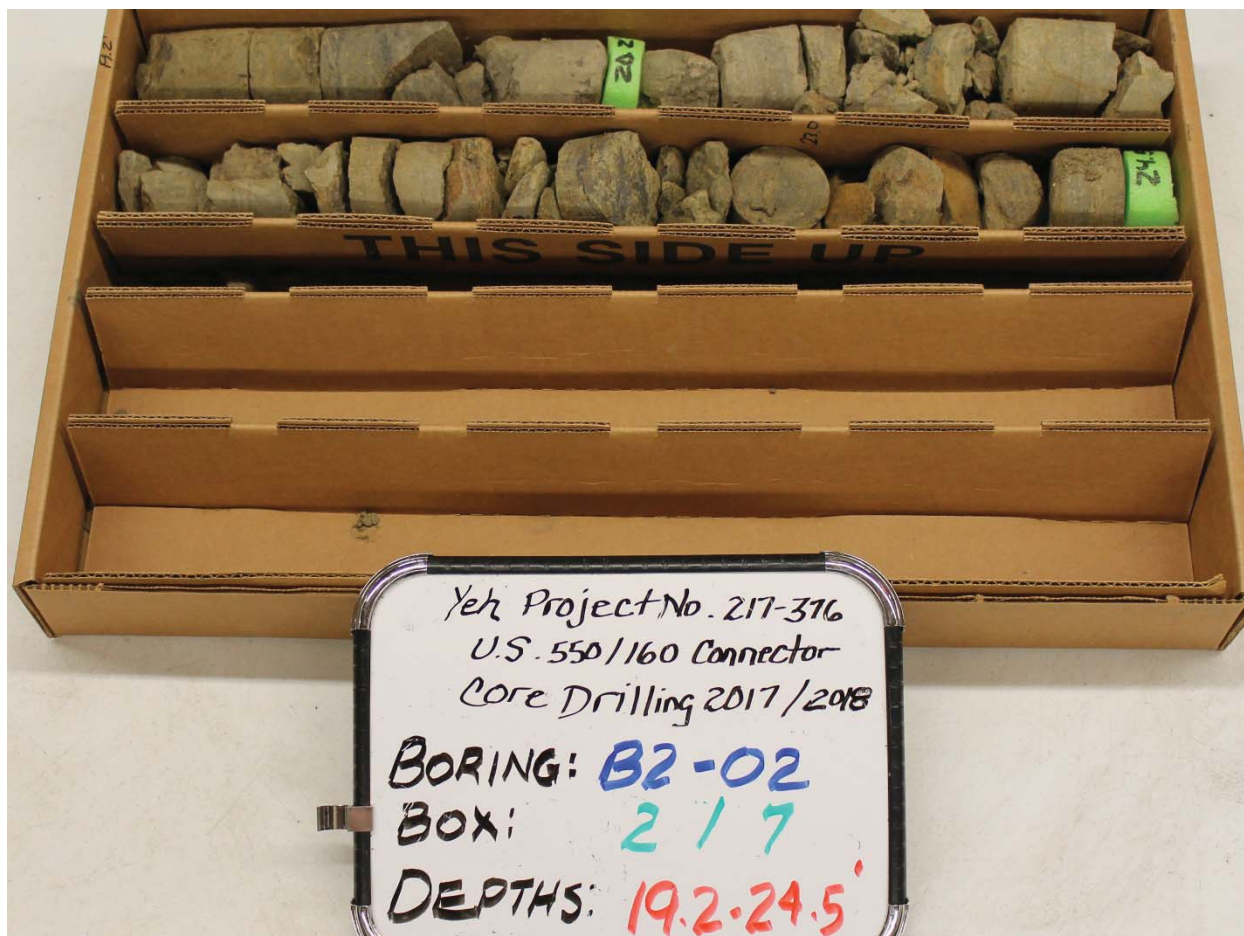 19.2'
202
23.0
24.5
THIS SIDE UP
Yeh Project No. 217-376
U.S. 550/160 Connector
Core Drilling 2017/2018
BORING: B2-02
BOX: 2 / 7
DEPTHS: 19.2-24.5'